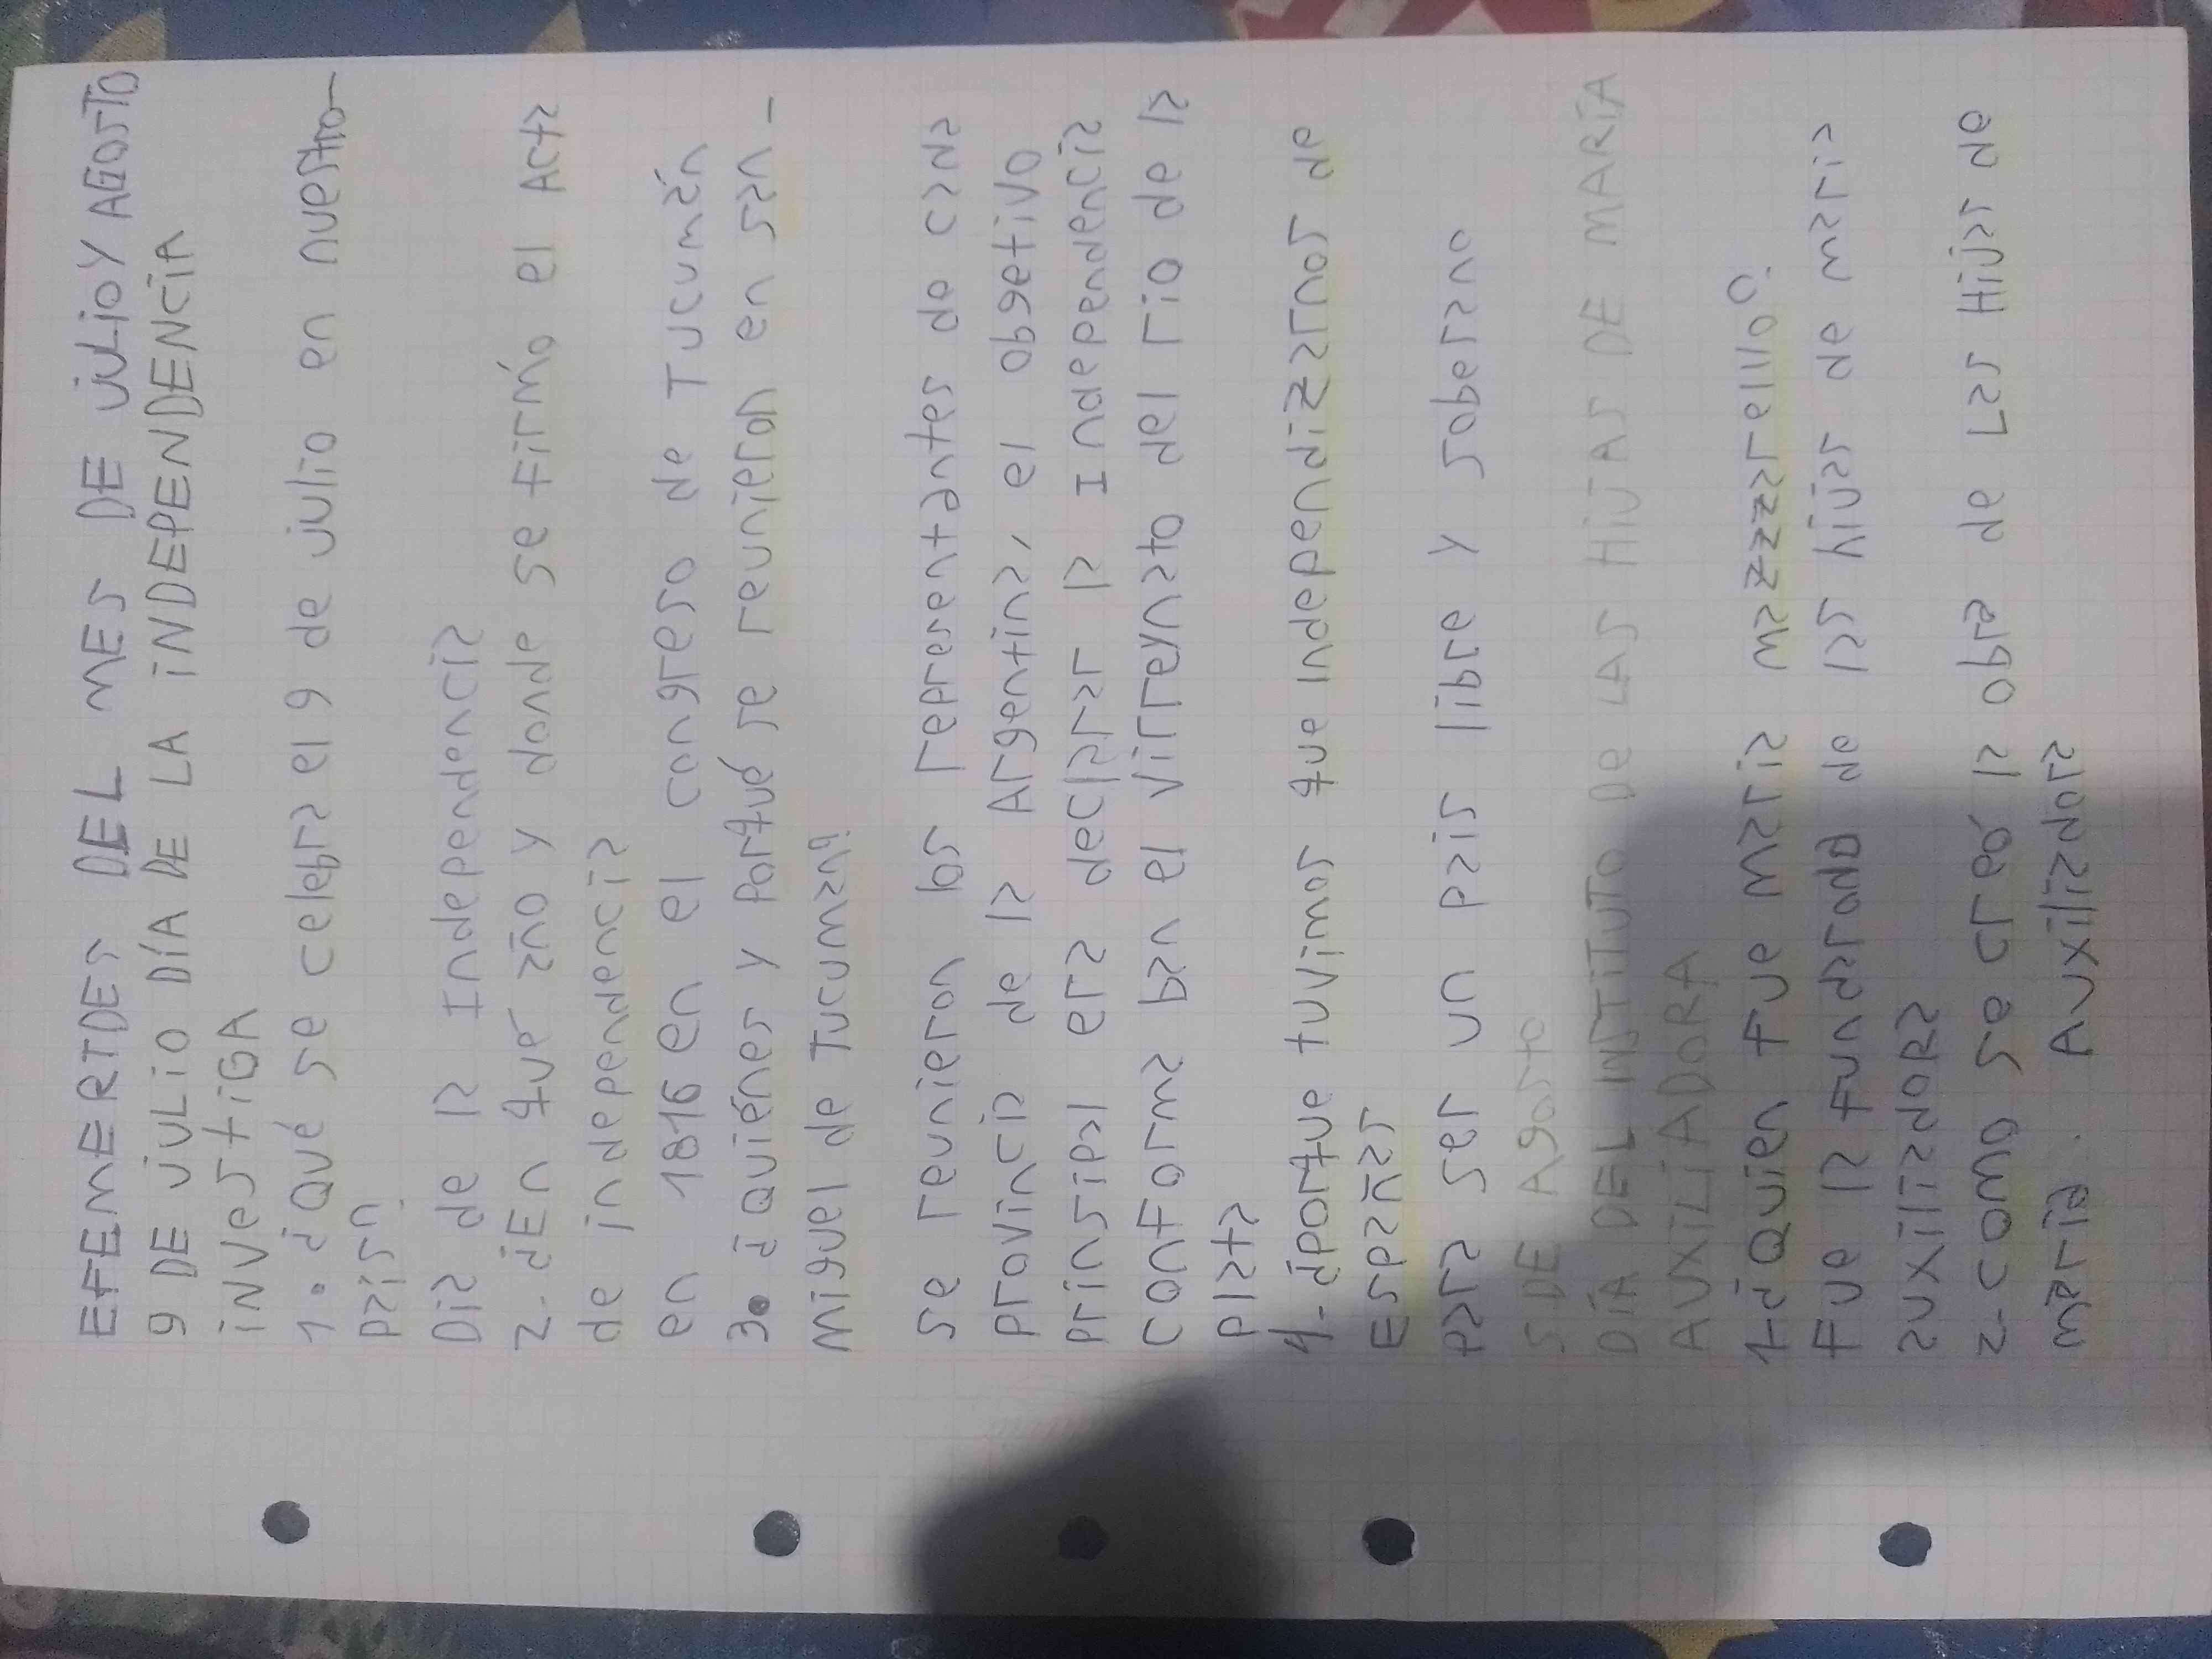 EFEMERIDES DEL MES DE JULIO Y AGOSTO
9 DE JULIO DÍA DE LA INDEPENDENCIA
INVESTIGA
1. ¿Qué se celebra el 9 de julio en nuestro
país?
Día de la Independencia
2-¿En qué año y donde se firmó el Acta
de independencia
en 1816 en el congreso de Tucumán
3. ¿Quiénes y Porqué se reunieron en san-
miguel de Tucuman?
se reunieron los representantes de cada
provincia de la Argentina, el obgetivo
prinsipal era declarar la Independencia
conforma ban el virreynato del rio de la
plata
4-¿porque tuvimos que independizarnos de
España
para ser un pais libre y soberano
5 DE Agosto
DÍA DEL INSTITUTO DE LAS HIJAS DE MARÍA
AUXILIADORA
1-¿Quien fue maria mazzarello?
Fue la fundarona de las hijas de maria
auxiliadora
2-como se creó la obra de Las Hijas de
maria. Auxiliadora